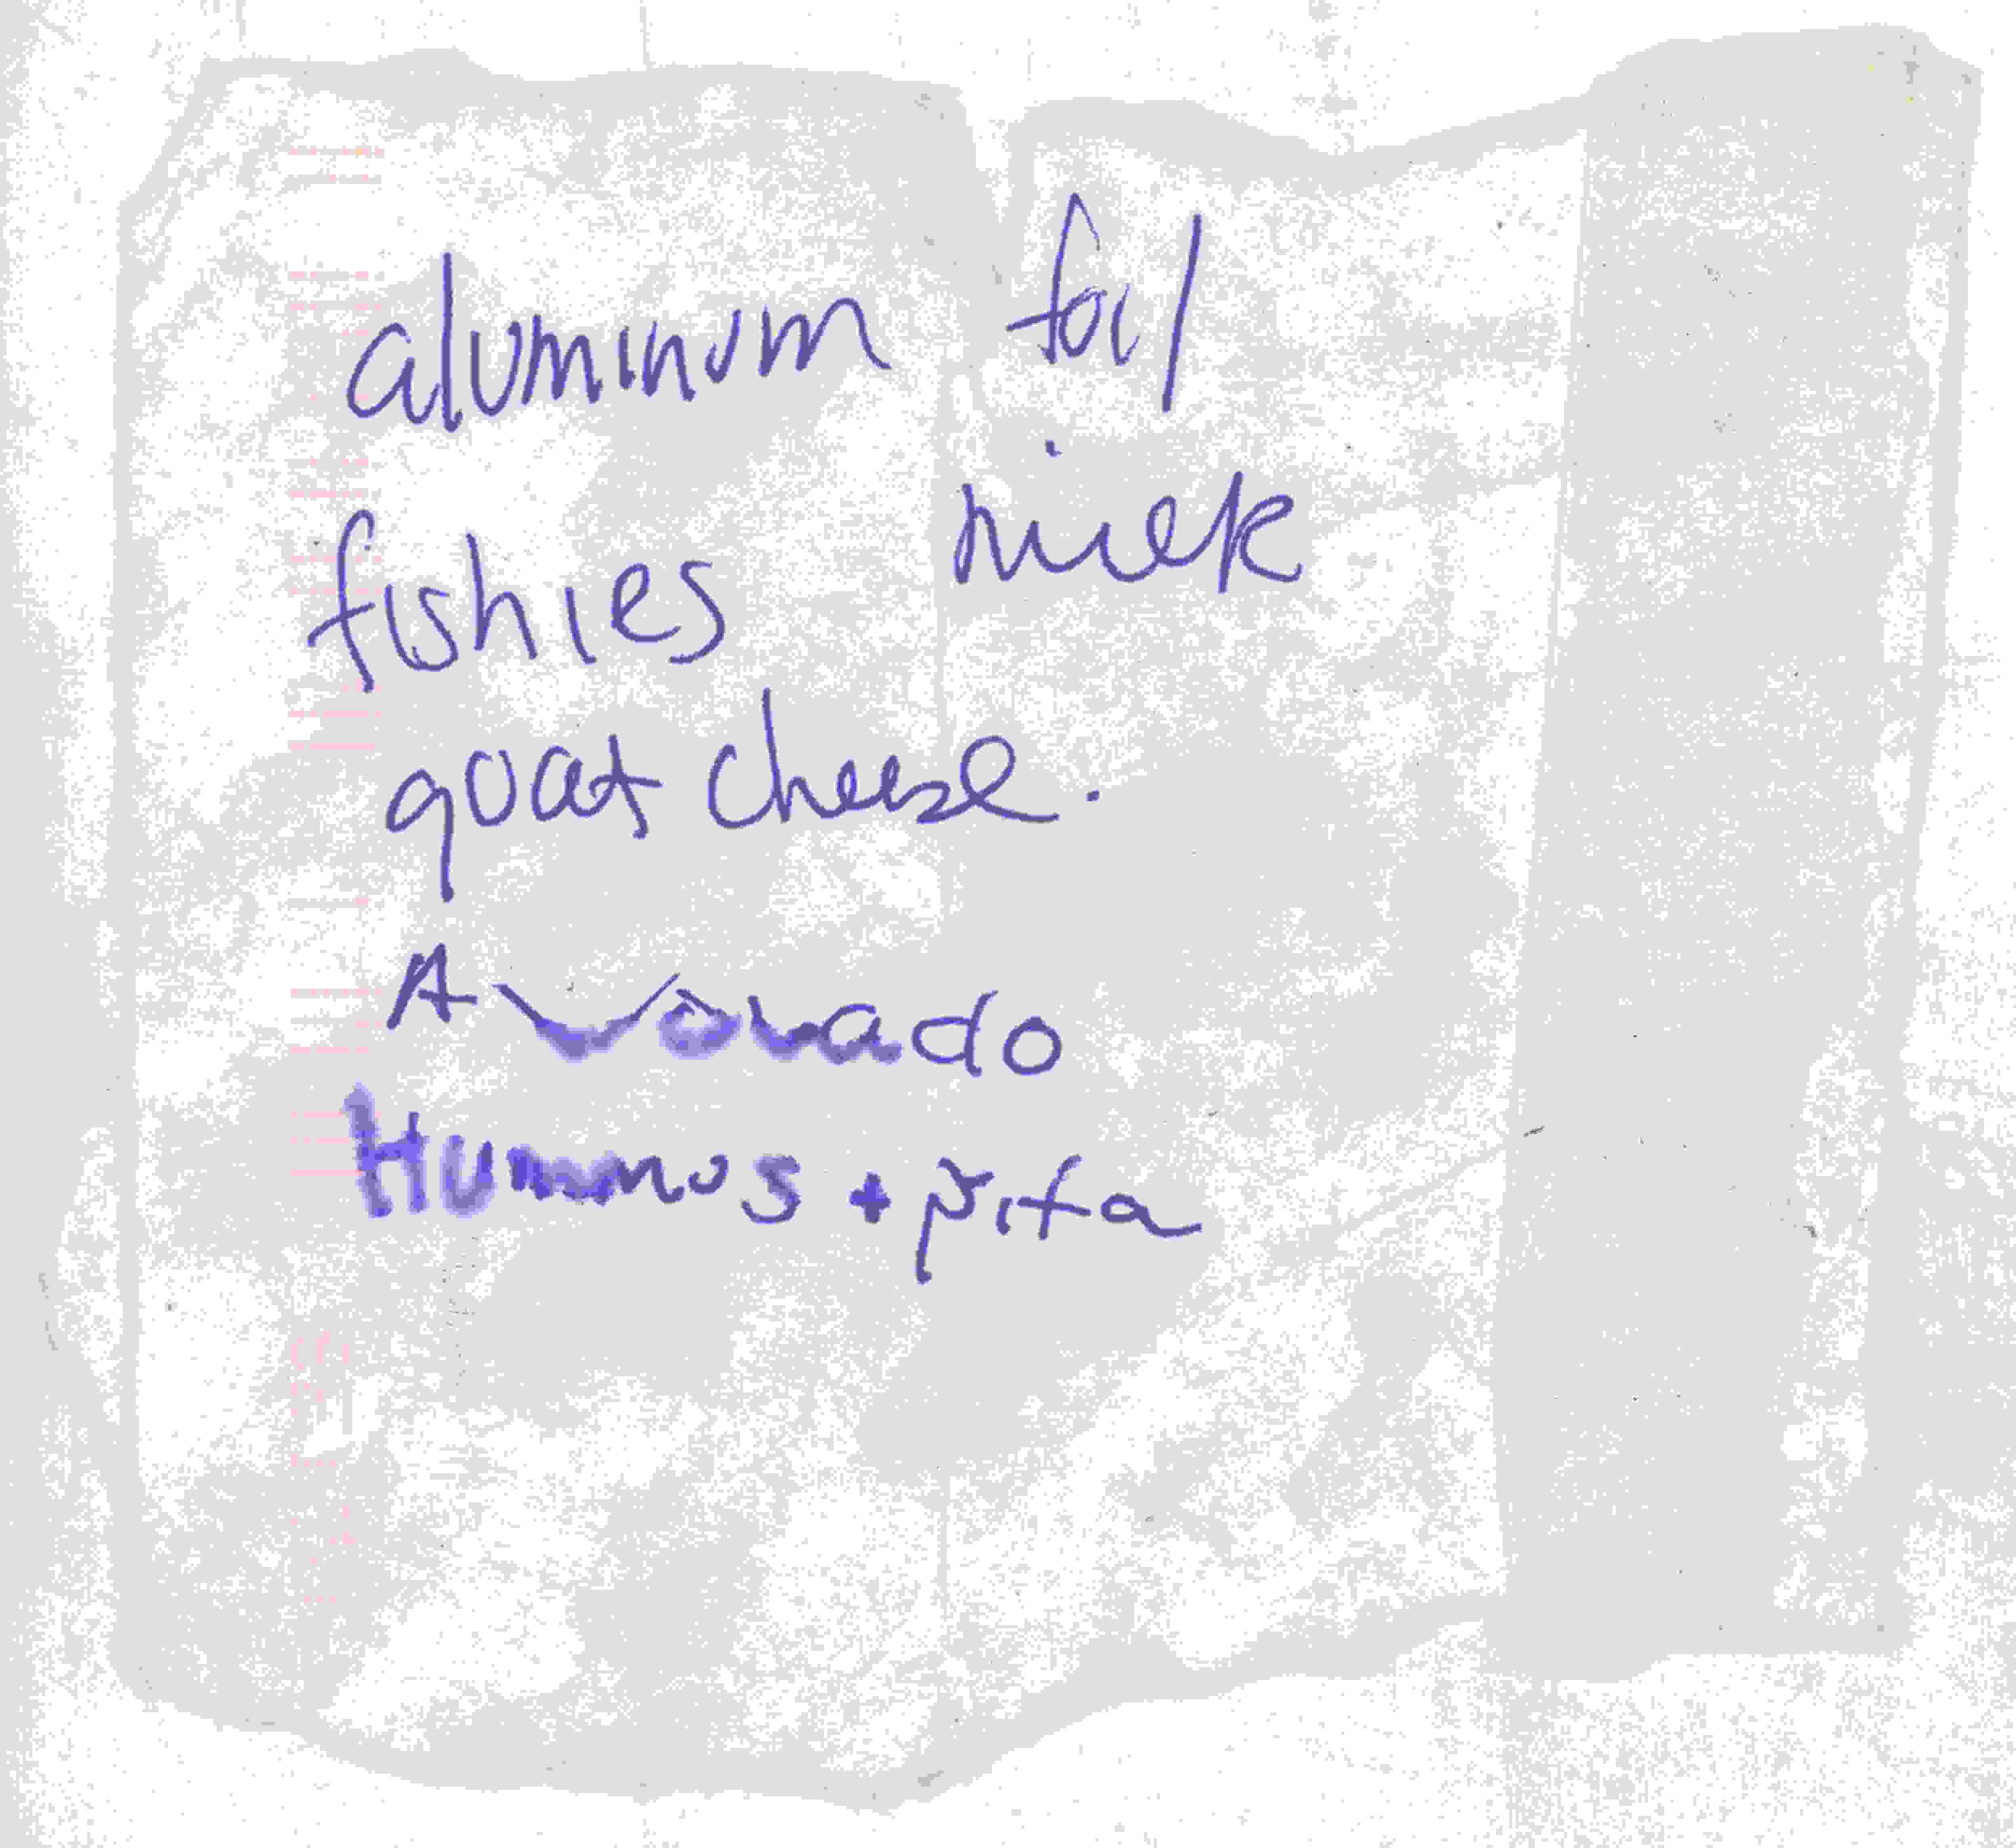 aluminum foil
fishies milk
goat cheese.
Avocado
Hummus + pita